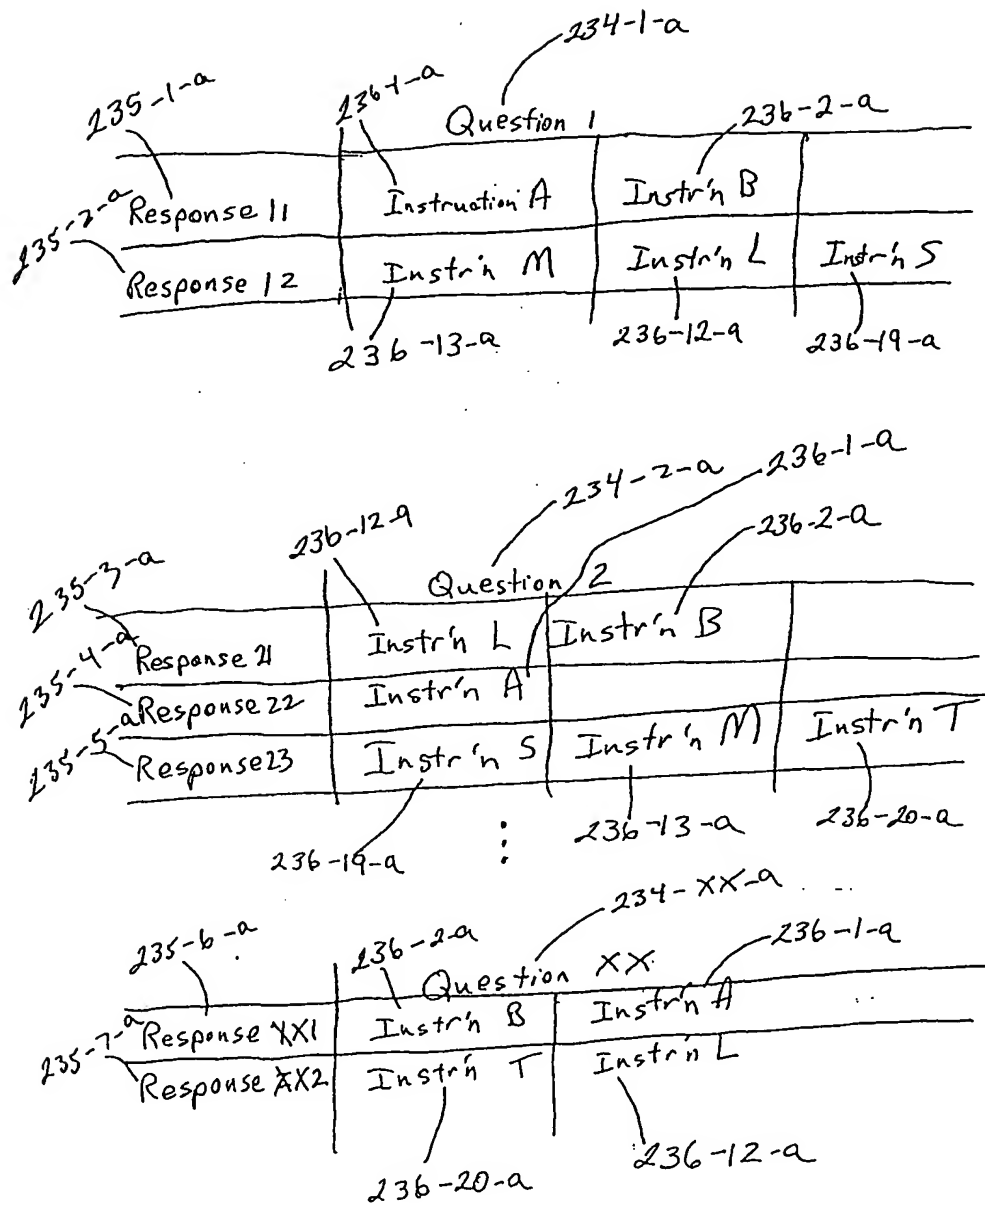 234-1-a
235-1-a 236-1-a Question 1 236-2-a
235-2-a Response 11 Instruction A Instr'n B
Response 12 Instr'n M Instr'n L Instr'n S
236-13-a 236-12-a 236-19-a
234-2-a 236-1-a
235-3-a 236-12-a Question 2 236-2-a
235-4-a Response 21 Instr'n L Instr'n B
235-5-a Response 22 Instr'n A
Response 23 Instr'n S Instr'n M Instr'n T
236-19-a 236-13-a 236-20-a
234-XX-a
235-6-a 236-2-a Question XX 236-1-a
Response XX1 Instr'n B Instr'n A
235-7-a Response XX2 Instr'n T Instr'n L
236-20-a 236-12-a